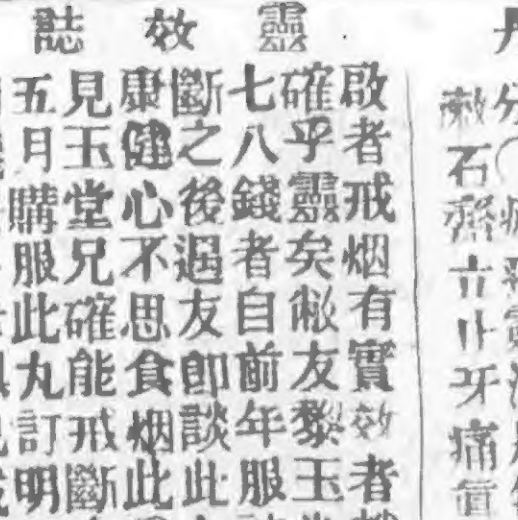 石齊立止牙痛
靈效誌
啟者戒烟有實效者
確乎靈矣敝友黎玉
七八錢者自前年服
斷之後遇友即談此
康健心不思食烟此
見玉堂兄確能戒斷
五月購服此丸訂明